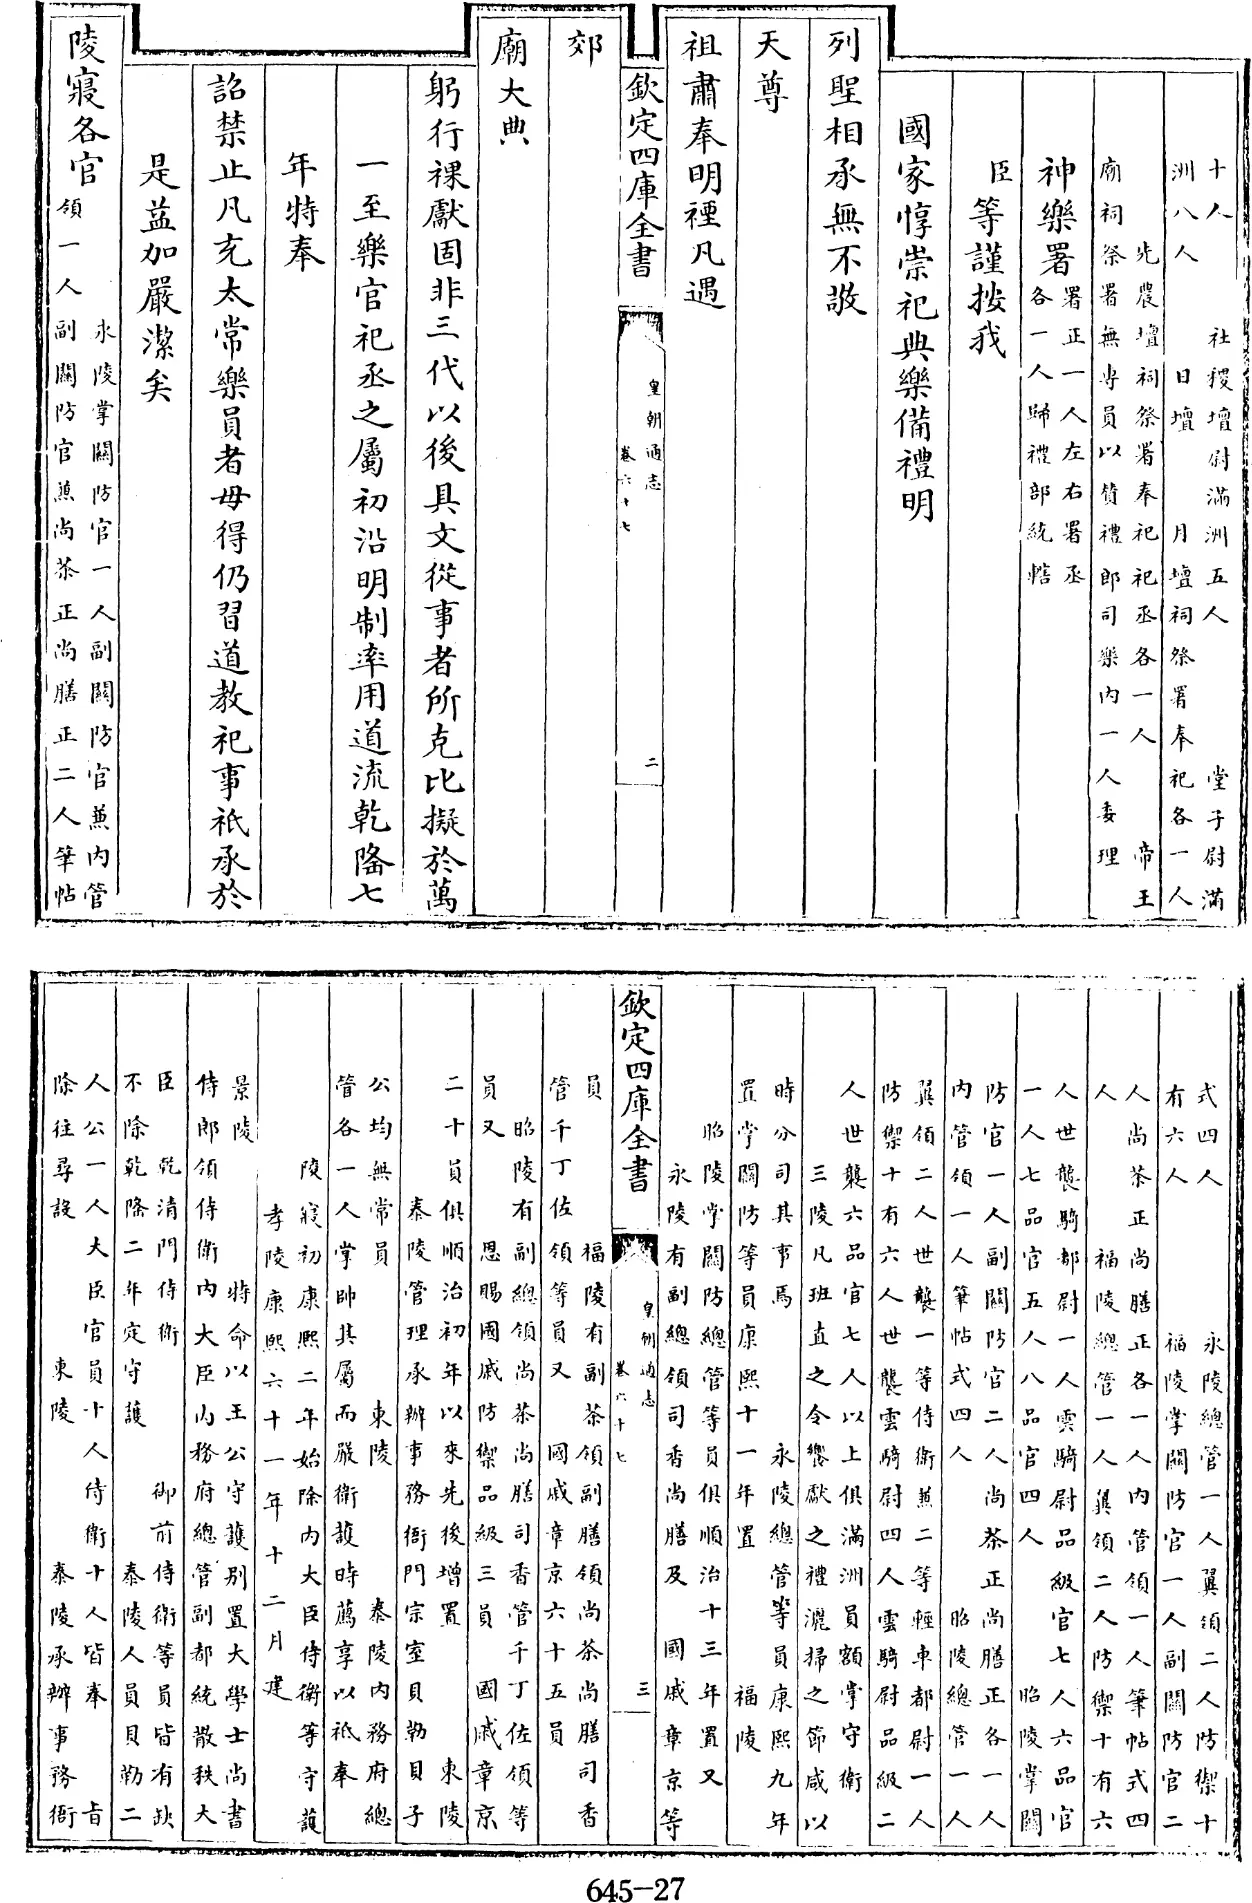 十人　社稷壇尉滿洲五人　堂子尉滿
洲八人　日壇　月壇祠祭署奉祀各一人
先農壇祠祭署奉祀祀丞各一人　帝王
廟祠祭署無專員以贊禮郎司樂內一人委理
神樂署署正一人左右署丞
各一人歸禮部統轄
臣等謹按我
國家惇崇祀典樂備禮明
列聖相承無不敬
天尊
祖肅奉明禋凡遇
欽定四庫全書
皇朝通志
卷六十七
二
郊
廟大典
躬行祼獻固非三代以後具文從事者所克比擬於萬
一至樂官祀丞之屬初沿明制率用道流乾隆七
年特奉
詔禁止凡充太常樂員者毋得仍習道教祀事祇承於
是益加嚴潔矣
陵寢各官永陵掌關防官一人副關防官兼內管
領一人副關防官兼尚茶正尚膳正二人筆帖
式四人　永陵總管一人翼領二人防禦十
有六人　福陵掌關防官一人副關防官二
人尚茶正尚膳正各一人內管領一人筆帖式四
人　福陵總管一人翼領二人防禦十有六
人世襲騎都尉一人雲騎尉品級官七人六品官
一人七品官五人八品官四人　昭陵掌關
防官一人副關防官二人尚茶正尚膳正各一人
內管領一人筆帖式四人　昭陵總管一人
翼領二人世襲一等侍衛兼二等輕車都尉一人
防禦十有六人世襲雲騎尉四人雲騎尉品級二
人世襲六品官七人以上俱滿洲員額掌守衛
三陵凡班直之令饗獻之禮灑掃之節咸以
時分司其事焉　永陵總管等員康熙九年
置掌關防等員康熙十一年置　福陵
昭陵掌關防總管等員俱順治十三年置又
永陵有副總領司香尚膳及　國戚章京等
欽定四庫全書
皇朝通志
卷六十七
三
員　福陵有副茶領副膳領尚茶尚膳司香
管千丁佐領等員又　國戚章京六十五員
昭陵有副總領尚茶尚膳司香管千丁佐領等
員又　恩賜國戚防禦品級三員　國戚章京
二十員俱順治初年以來先後增置　東陵
泰陵管理承辦事務衙門宗室貝勒貝子
公均無常員　東陵　泰陵內務府總
管各一人掌帥其屬而嚴衛護時薦享以祗奉
陵寢初康熙二年始除內大臣侍衛等守護
孝陵康熙六十一年十二月建
景陵　特命以王公守護別置大學士尚書
侍郎領侍衛內大臣內務府總管副都統散秩大
臣　乾清門侍衛　御前侍衛等員皆有缺
不除乾隆二年定守護　泰陵人員貝勒二
人公一人大臣官員十人侍衛十人皆奉　旨
除往尋設　東陵　泰陵承辦事務衙
645-27